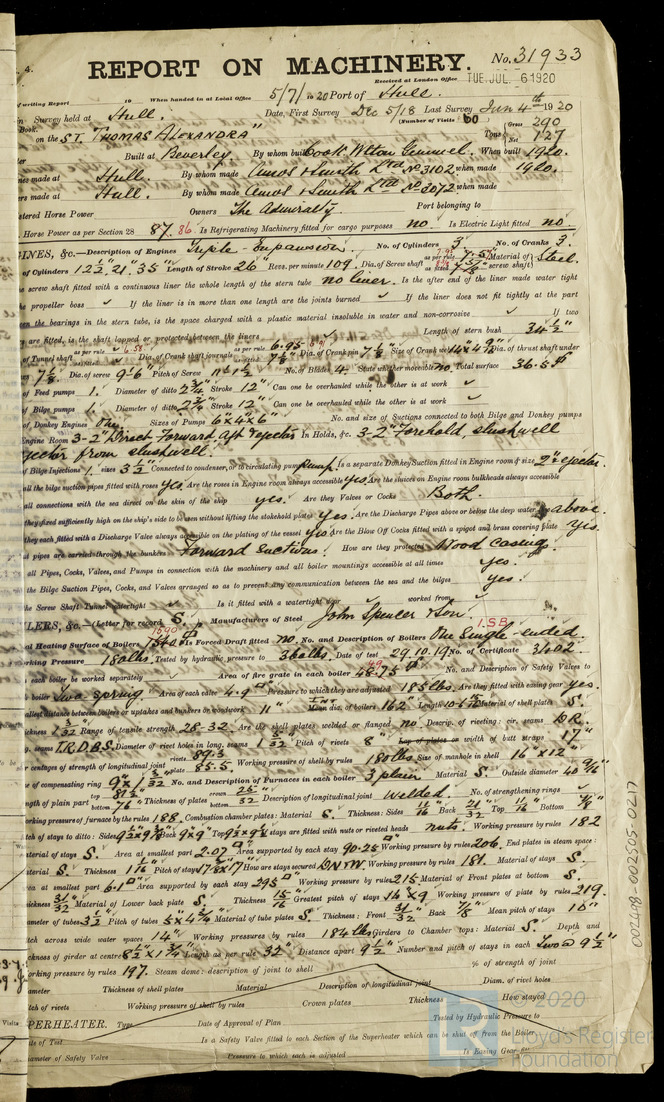 4.
REPORT ON MACHINERY. No. 31933
Received at London Office TUE. JUL. 6 1920
of writing Report 19 When handed in at Local Office 5/7/ 1920 Port of Hull.
in Survey held at Hull. Date, First Survey Dec 5/18 Last Survey Jun 4th 1920
Book. (Number of Visits 60
on the S.T. "THOMAS ALEXANDRA" Tons { Gross 290 Net 127
Built at Beverley By whom built Cook. Welton Gemmell. When built 1920.
ines made at Hull. By whom made Amos & Smith Ltd No 3102 when made 1920.
ers made at Hull. By whom made Amos & Smith Ltd No 3072 when made
stered Horse Power Owners The Admiralty Port belonging to
Horse Power as per Section 28 87. 86. Is Refrigerating Machinery fitted for cargo purposes no Is Electric Light fitted no
INES, &c.—Description of Engines Triple-Expansion. No. of Cylinders 3 No. of Cranks 3.
of Cylinders 12½. 21. 35" Length of Stroke 26" Revs. per minute 109. Dia. of Screw shaft as per rule 7.5" as fitted Material of screw shaft Steel.
he screw shaft fitted with a continuous liner the whole length of the stern tube no liner. Is the after end of the liner made water tight
the propeller boss ✓ If the liner is in more than one length are the joints burned ✓ If the liner does not fit tightly at the part
een the bearings in the stern tube, is the space charged with a plastic material insoluble in water and non-corrosive ✓ If two
are fitted, is the shaft lapped or protected between the liners ✓ Length of stern bush 34½"
of Tunnel shaft as per rule as fitted Dia. of Crank shaft journals as per rule 6.95 as fitted 7⅛" Dia. of Crank pin 7⅛" Size of Crank webs 14" x 4⅞" Dia. of thrust shaft under
7⅛" Dia. of screw 9'-6" Pitch of Screw 11'-1½ No. of Blades 4. State whether moveable no. Total surface 36.5
of Feed pumps 1. Diameter of ditto 2¾" Stroke 12" Can one be overhauled while the other is at work ✓
of Bilge pumps 1. Diameter of ditto 2¾" Stroke 12" Can one be overhauled while the other is at work ✓
of Donkey Engines One. Sizes of Pumps 6" x 4" x 6" No. and size of Suctions connected to both Bilge and Donkey pumps
Engine Room 3-2" Direct Forward Aft & ejector In Holds, &c. 3-2" Forehold, slushwell
ejector from slushwell.
of Bilge Injections 1. sizes 3½" Connected to condenser, or to circulating pump pump. Is a separate Donkey Suction fitted in Engine room & size 2" ejector.
all the bilge suction pipes fitted with roses yes. Are the roses in Engine room always accessible yes. Are the sluices on Engine room bulkheads always accessible
all connections with the sea direct on the skin of the ship yes. Are they Valves or Cocks Both.
they fixed sufficiently high on the ship's side to be seen without lifting the stokehold plates yes. Are the Discharge Pipes above or below the deep water above.
they each fitted with a Discharge Valve always accessible on the plating of the vessel yes Are the Blow Off Cocks fitted with a spigot and brass covering plate yes.
at pipes are carried through the bunkers Forward Suctions. How are they protected Wood Casings.
all Pipes, Cocks, Valves, and Pumps in connection with the machinery and all boiler mountings accessible at all times yes.
the Bilge Suction Pipes, Cocks, and Valves arranged so as to prevent any communication between the sea and the bilges yes.
the Screw Shaft Tunnel watertight ✓ Is it fitted with a watertight door worked from
LERS, &c.—(Letter for record S.) Manufacturers of Steel John Spencer & Son 1.SB.
al Heating Surface of Boilers 1540 1590 Is Forced Draft fitted no. No. and Description of Boilers One Single-ended.
orking Pressure 180 lbs. Tested by hydraulic pressure to 360 lbs. Date of test 29.10.19 No. of Certificate 3402
each boiler be worked separately ✓ Area of fire grate in each boiler 48.75 49 No. and Description of Safety Valves to
boiler Two spring Area of each valve 4.9 Pressure to which they are adjusted 185 lbs. Are they fitted with easing gear yes.
allest distance between boilers or uptakes and bunkers or woodwork 11" dia. of boilers 162 Length Material of shell plates S.
ckness 1 1/32 Range of tensile strength 28-32. Are the shell plates welded or flanged no Descrip. of riveting: cir. seams D.R.
g. seams T.R.D.B.S. Diameter of rivet holes in long. seams 1 5/32 Pitch of rivets 8" Lap of plates or width of butt straps 17"
centages of strength of longitudinal joint rivets 89.3 plate 85.5 Working pressure of shell by rules 180 lbs Size of manhole in shell 16" x 12"
of compensating ring 9" x 1 3/32 No. and Description of Furnaces in each boiler 3 plain Material S. Outside diameter 40 9/16"
gth of plain part top bottom 76" Thickness of plates crown bottom 25/32 Description of longitudinal joint welded. No. of strengthening rings ✓
rking pressure of furnace by the rules 188. Combustion chamber plates: Material S. Thickness: Sides 11/16 Back 21/32 Top 11/16 Bottom
itch of stays to ditto: Sides 9½ x 9⅞ Back 9 x 9 Top stays are fitted with nuts or riveted heads nuts. Working pressure by rules 182
aterial of stays S. Area at smallest part 2.07 Area supported by each stay 90.25 Working pressure by rules 206. End plates in steam space:
terial S. Thickness 1 1/16 Pitch of stays 17⅝ x 17 How are stays secured D.N.W. Working pressure by rules 181. Material of stays S.
ea at smallest part 6.1 Area supported by each stay 295 Working pressure by rules 215 Material of Front plates at bottom S.
ckness 31/32 Material of Lower back plate S. Thickness 15/16 Greatest pitch of stays 14 x 9 Working pressure of plate by rules 219.
ameter of tubes 3½ Pitch of tubes 5 x 4¾ Material of tube plates S. Thickness: Front 31/32 Back 7/8 Mean pitch of stays 10"
itch across wide water spaces 14" Working pressures by rules 184 lbs Girders to Chamber tops: Material S. Depth and
ckness of girder at centre 8½ x 1¾ Length as per rule 32" Distance apart 9½" Number and pitch of stays in each Two @ 9½
orking pressure by rules 197. Steam dome: description of joint to shell % of strength of joint
ameter Thickness of shell plates Material Description of longitudinal joint Diam. of rivet holes
itch of rivets Working pressure of shell by rules Crown plates Thickness How stayed
PERHEATER. Type Date of Approval of Plan Tested by Hydraulic Pressure to
ate of Test Is a Safety Valve fitted to each Section of the Superheater which can be shut off from the Boiler
ameter of Safety Valve Pressure to which each is adjusted Is Easing Gear fitted
002418-002505-0217
© 2020
Lloyd's Register
Foundation